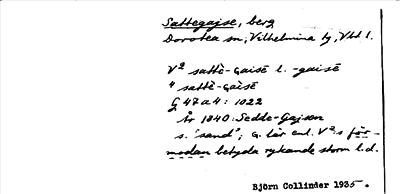 Sattegajse, berg
Dorotea sn, Vilhelmina tg, Vbl l.
V² sattē-gaisē l. -gaisē
4 sattē-gàisē
G 47 a 4 : 1022
År 1840: Sedde-Gajsen
s. "sand"; g. lär enl. V²:s för-
modan betyda rykande storm l.d.
Björn Collinder 1935.